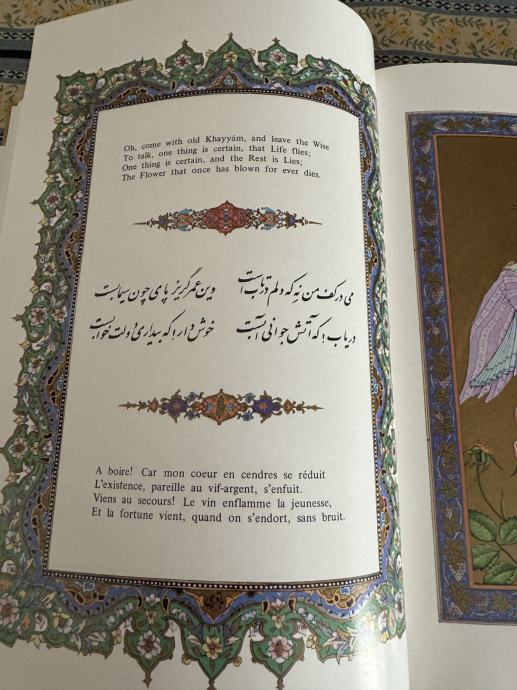 Oh, come with old Khayyám, and leave the Wise
To talk, one thing is certain, that Life flies;
One thing is certain, and the Rest is Lies;
The Flower that once has blown for ever dies.
می در کف من نه که دلم در تاب است وین عمر گریز پای چون سیمابست
دریاب! که آتش جوانی آبست خوش دار! که بیداری دولت خوابست
A boire! Car mon coeur en cendres se réduit
L'existence, pareille au vif-argent, s'enfuit.
Viens au secours! Le vin enflamme la jeunesse,
Et la fortune vient, quand on s'endort, sans bruit.